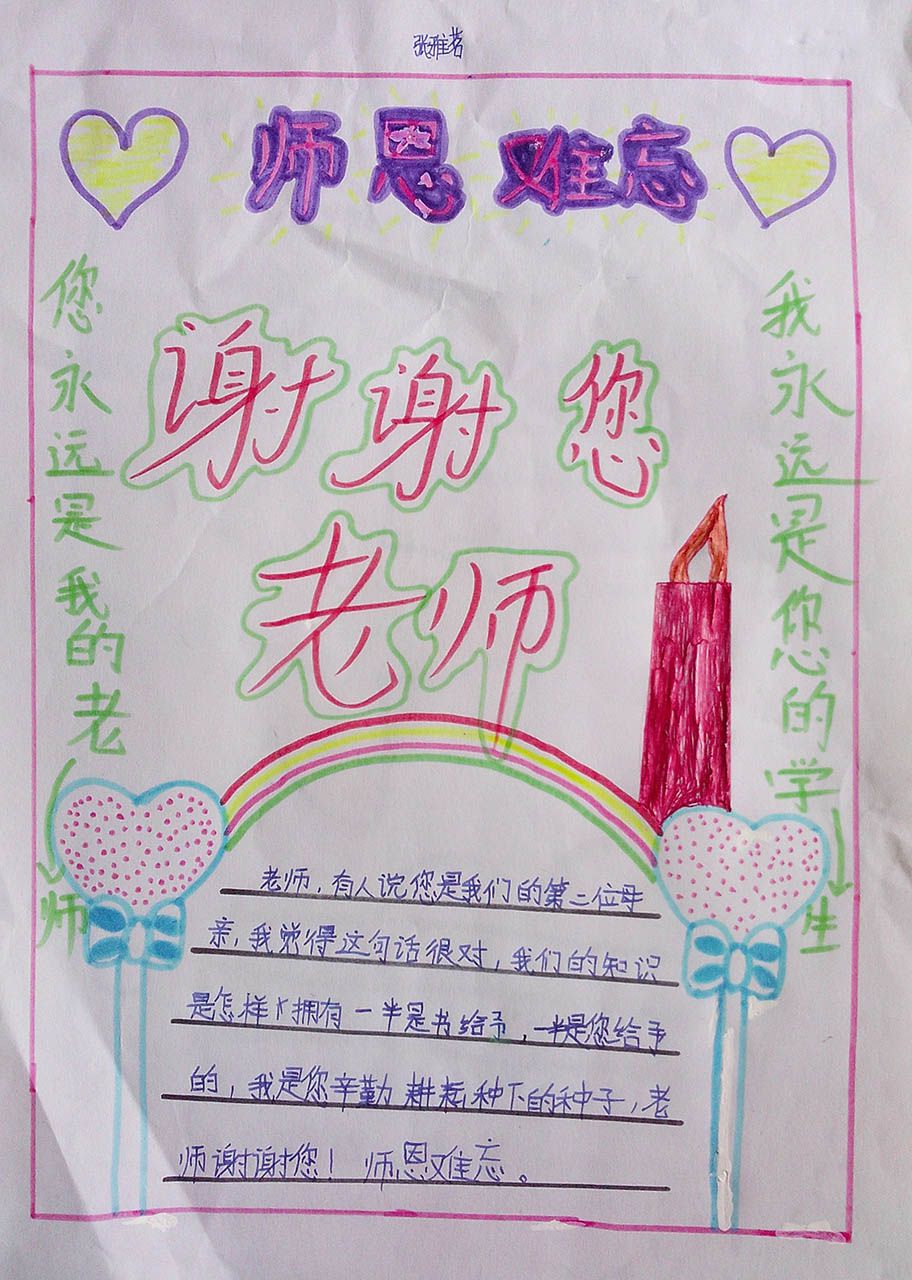 张雅茗
师恩难忘
谢谢您
老师
您永远是我的老师
我永远是您的学生
老师，有人说您是我们的第二位母
亲，我觉得这句话很对，我们的知识
是怎样 拥有一半是书给予，一半是您给予
的，我是您辛勤耕耘种下的种子，老
师谢谢您！师恩难忘。